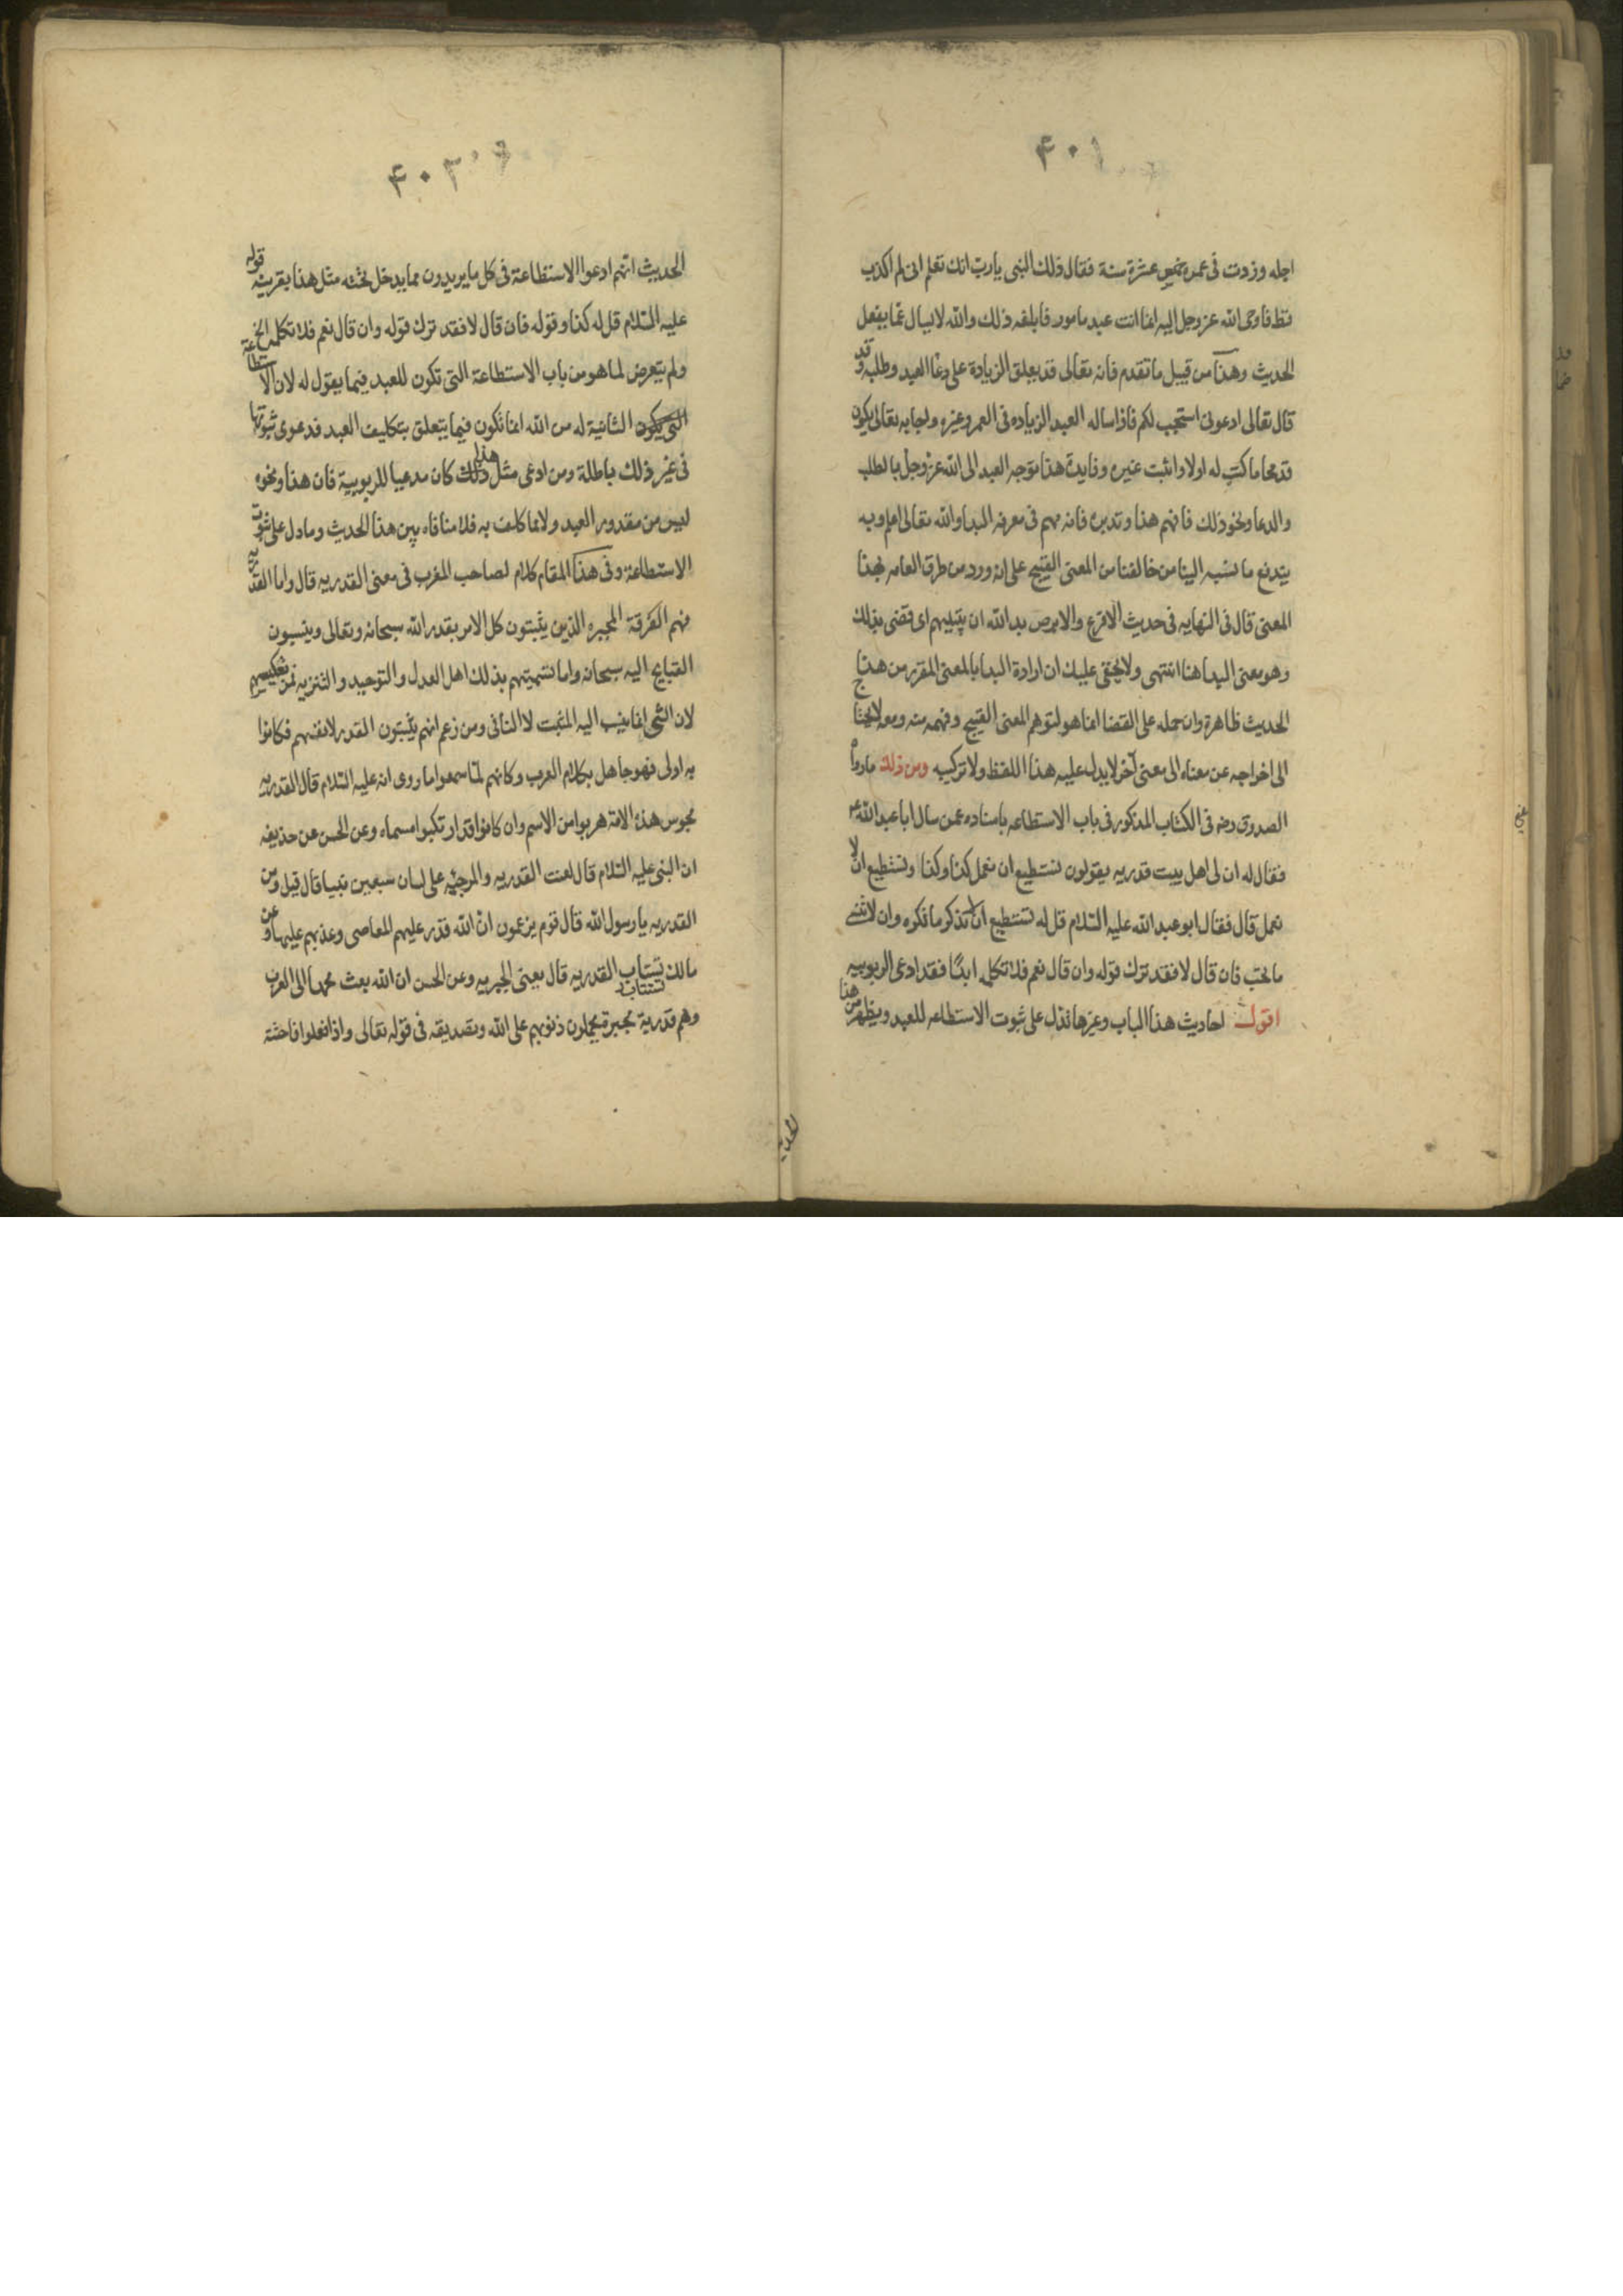 ٤٠١
اجله وزدت فى عمره خمس عشرة سنة فقال ذلك النبى يا رب انك تعلم انى لم اكذب
قط فاوحى الله عز وجل اليه انما انت عبد مامور فابلغه ذلك والله لا يسال عما يفعل
الحديث وهذا من قبيل ما تقدم فانه تعالى قد يعلق الزيادة على دعا العبد وطلبه وقد
قال تعالى ادعونى استجب لكم فاذا ساله العبد الزياده فى العمر وغيره واجابه تعالى يكون
قد محا ما كتب له اولا واثبت غيره وفايدة هذا توجه العبد الى الله عز وجل بالطلب
والدعا ونحو ذلك فافهم هذا وتدبره فانه مهم فى معرفه البدا والله تعالى اعلم وبه
يندفع ما نسبه الينا من خالفنا من المعنى القبيح على انه ورد من طرق العامه بهذا
المعنى قال فى النهايه فى حديث الاقرع والابرص بدا لله ان يبتليهم اى قضى بذلك
وهو معنى البدا هنا انتهى ولا يخفى عليك ان ارادة البدا بالمعنى المقرر من هذا
الحديث ظاهرة وان حمله على القضا انما هو لتوهم المعنى القبيح وفهمه منه ومعه لا يحتاج
الى اخراجه عن معناه الى معنى آخر لا يدل عليه هذا اللفظ ولا تركيبه ومن ذلك ما رواه
الصدوق رضه فى الكتاب المذكور فى باب الاستطاعه باسناده عمن سال ابا عبد الله ع
فقال له ان لى اهل بيت قدريه يقولون نستطيع ان نعمل كذا وكذا ونستطيع ان لا
نعمل قال فقال ابو عبد الله عليه السلام قل له تستطيع ان لا تذكر ما تكره وان لا تنسى
ما تحب فان قال لا فقد ترك قوله وان قال نعم فلا تكلمه ابدًا فقد ادعى الربوبيه
اقول احاديث هذا الباب وغيرها تدل على ثبوت الاستطاعه للعبد ويظهر من هذا
الحديث
٤٠٢
الحديث انهم ادعوا الاستطاعة فى كل ما يريدون مما يدخل تحته مثل هذا بقرينه قوله
عليه السلام قل له كذا وقوله فان قال لا فقد ترك قوله وان قال نعم فلا تكلمه الخ
ولم يتعرض لما هو من باب الاستطاعة التى تكون للعبد فيما يقول له لان الاستطاعة
التى يكون الثانية له من الله انما تكون فيما يتعلق بتكليف العبد فدعوى ثبوتها
فى غير ذلك باطلة ومن ادعى مثل ذلك هذا كان مدعيا للربوبية فان هذا ونحوه
ليس من مقدور العبد ولا مما كلف به فلا منافاه بين هذا الحديث وما دل على ثبوت
الاستطاعة وفى هذا المقام كلام لصاحب المغرب فى معنى القدريه قال واما القدريّة
فهم الفرقة المجبره الذين يثبتون كل الامر بقدر الله سبحانه وتعالى وينسبون
القبايح اليه سبحانه واما تسميتهم بذلك اهل العدل والتوحيد والتنزيه فمن تعكيسهم
لان الشى انما ينسب اليه المثبت لا النافى ومن زعم انهم يثبتون القدر لانفسهم فكانوا
به اولى فهو جاهل بكلام العرب وكانهم لمّا سمعوا ما روى انه عليه السلام قال القدريه
مجوس هذه الامة هربوا من الاسم وان كانوا قد ارتكبوا مسماه وعن الحسن عن حذيفه
ان النبى عليه السلام قال لعنت القدريه والمرجئه على لسان سبعين نبيا قال قيل ومن
القدريه يا رسول الله قال قوم يزعمون انّ الله قدر عليهم المعاصى وعذبهم عليها وعن
مالك تستاب القدريه قال يعنى الجبريه وعن الحسن ان الله بعث محمدا الى العرب
تستتاب
وهم قدرية مجبرة يحملون ذنوبهم على الله وتصديقه فى قوله تعالى واذا فعلوا فاحشة